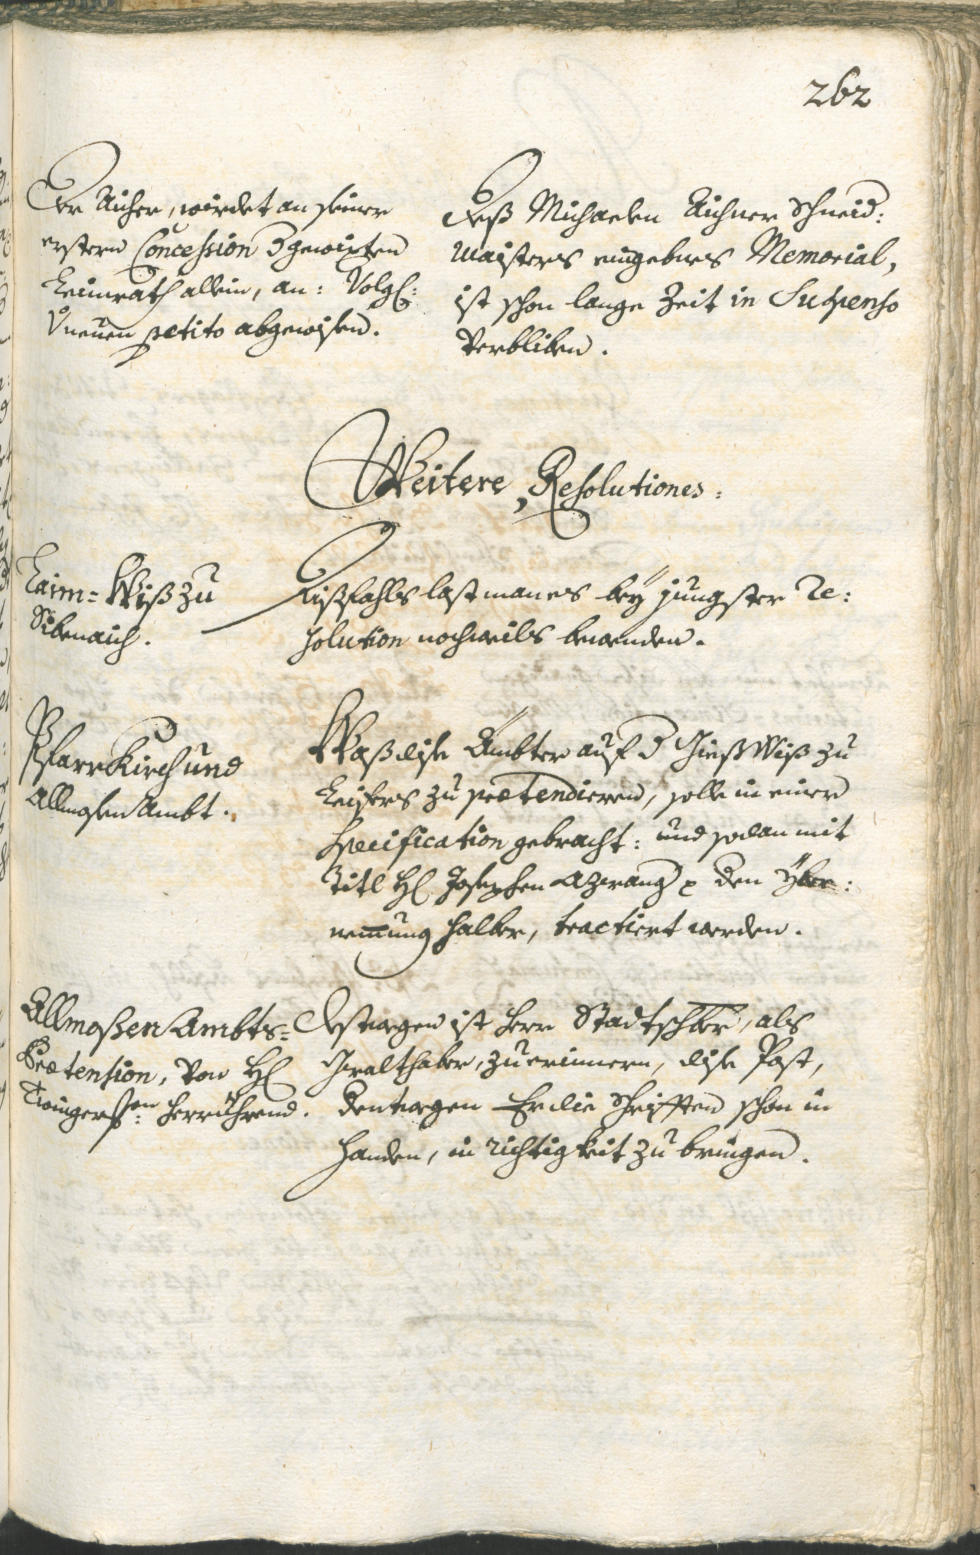 262
Der Aicher, wirdet an seiner
erstern Concession d gewixten
Heimrath allein, an: Volgl:
Vneüen petito abgewisen.
Deß Michaelen Aichner Schneid:
Maisters eingebnes Memorial,
ist schon lange Zeit in Suspenso
Verbliben.
Weitere Resolutiones:
Laim= Wiß zu
Sibenaich.
Dißfahls last man es bey jungster Re:
solution nochmals bewenden.
Pfarr Kirch und
Allmosen Ambt.
Waß dise Ämbter auf d Gieß Wiß zu
Leifers zu prætendieren, solle in einer
Specification gebracht: und sodan mit
Titl Hl Josephen Azwang den Yber:
nemung halber, tractiert werden.
Allmoßen Ambts=
Prætension, Von Hl
herrührend.
Destwegen ist Herr Stadtschbr, als
Gwalthaber, zu erinnern, dise Post,
dentwegen Er die Schrifften schon in
handen, in richtigkeit zu bringen.